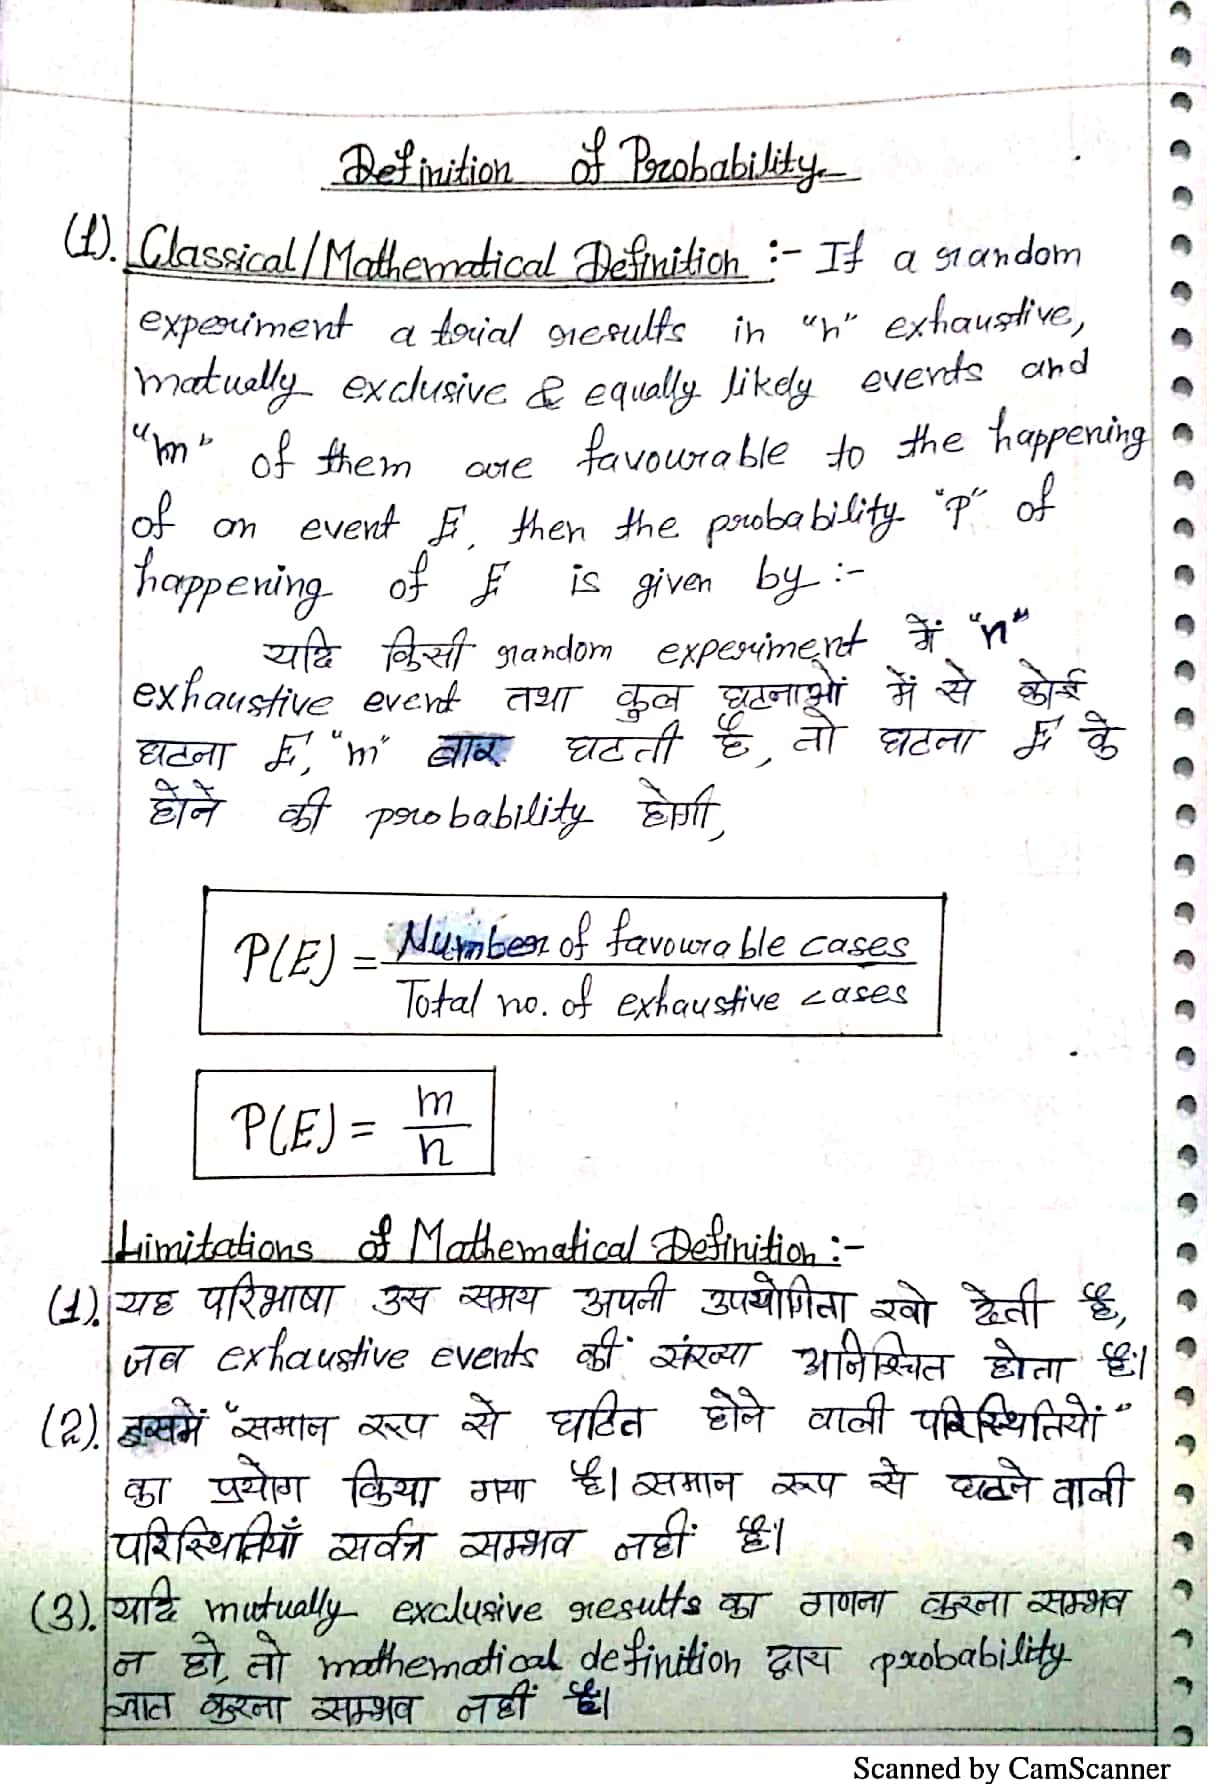 Definition of Probability
(1). Classical/Mathematical Definition :- If a random
experiment a trial results in "n" exhaustive,
matually exclusive & equally likely events and
"m" of them are favourable to the happening
of an event E, then the probability "P" of
happening of E is given by :-
यदि किसी random experiment में "n"
exhaustive event तथा कुल घटनाओं में से कोई
घटना E, "m" बार घटती है, तो घटना E के
होने की probability होगी,
P(E) = Number of favourable cases
Total no. of exhaustive cases
P(E) = m
n
Limitations of Mathematical Definition :-
(1). यह परिभाषा उस समय अपनी उपयोगिता खो देती है,
जब exhaustive events कीं संख्या अनिश्चित होता हैं।
(2). इसमें "समान रूप से घटित होने वाली परिस्थितियों"
का प्रयोग किया गया है। समान रूप से घटने वाली
परिस्थितियाँ सर्वत्र सम्भव नहीं है।
(3). यदि mutually exclusive results का गणना करना सम्भव
न हो, तो mathematical definition द्वारा probability
ज्ञात करना सम्भव नहीं है।
Scanned by CamScanner